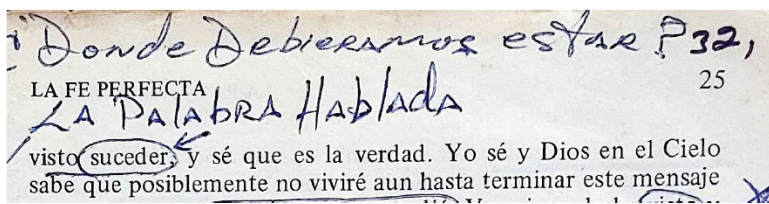 ¿Donde Debieramos estar? P32,
LA FE PERFECTA 25
LA PALAbRA HAblAdA
visto suceder, y sé que es la verdad. Yo sé y Dios en el Cielo
sabe que posiblemente no viviré aun hasta terminar este mensaje